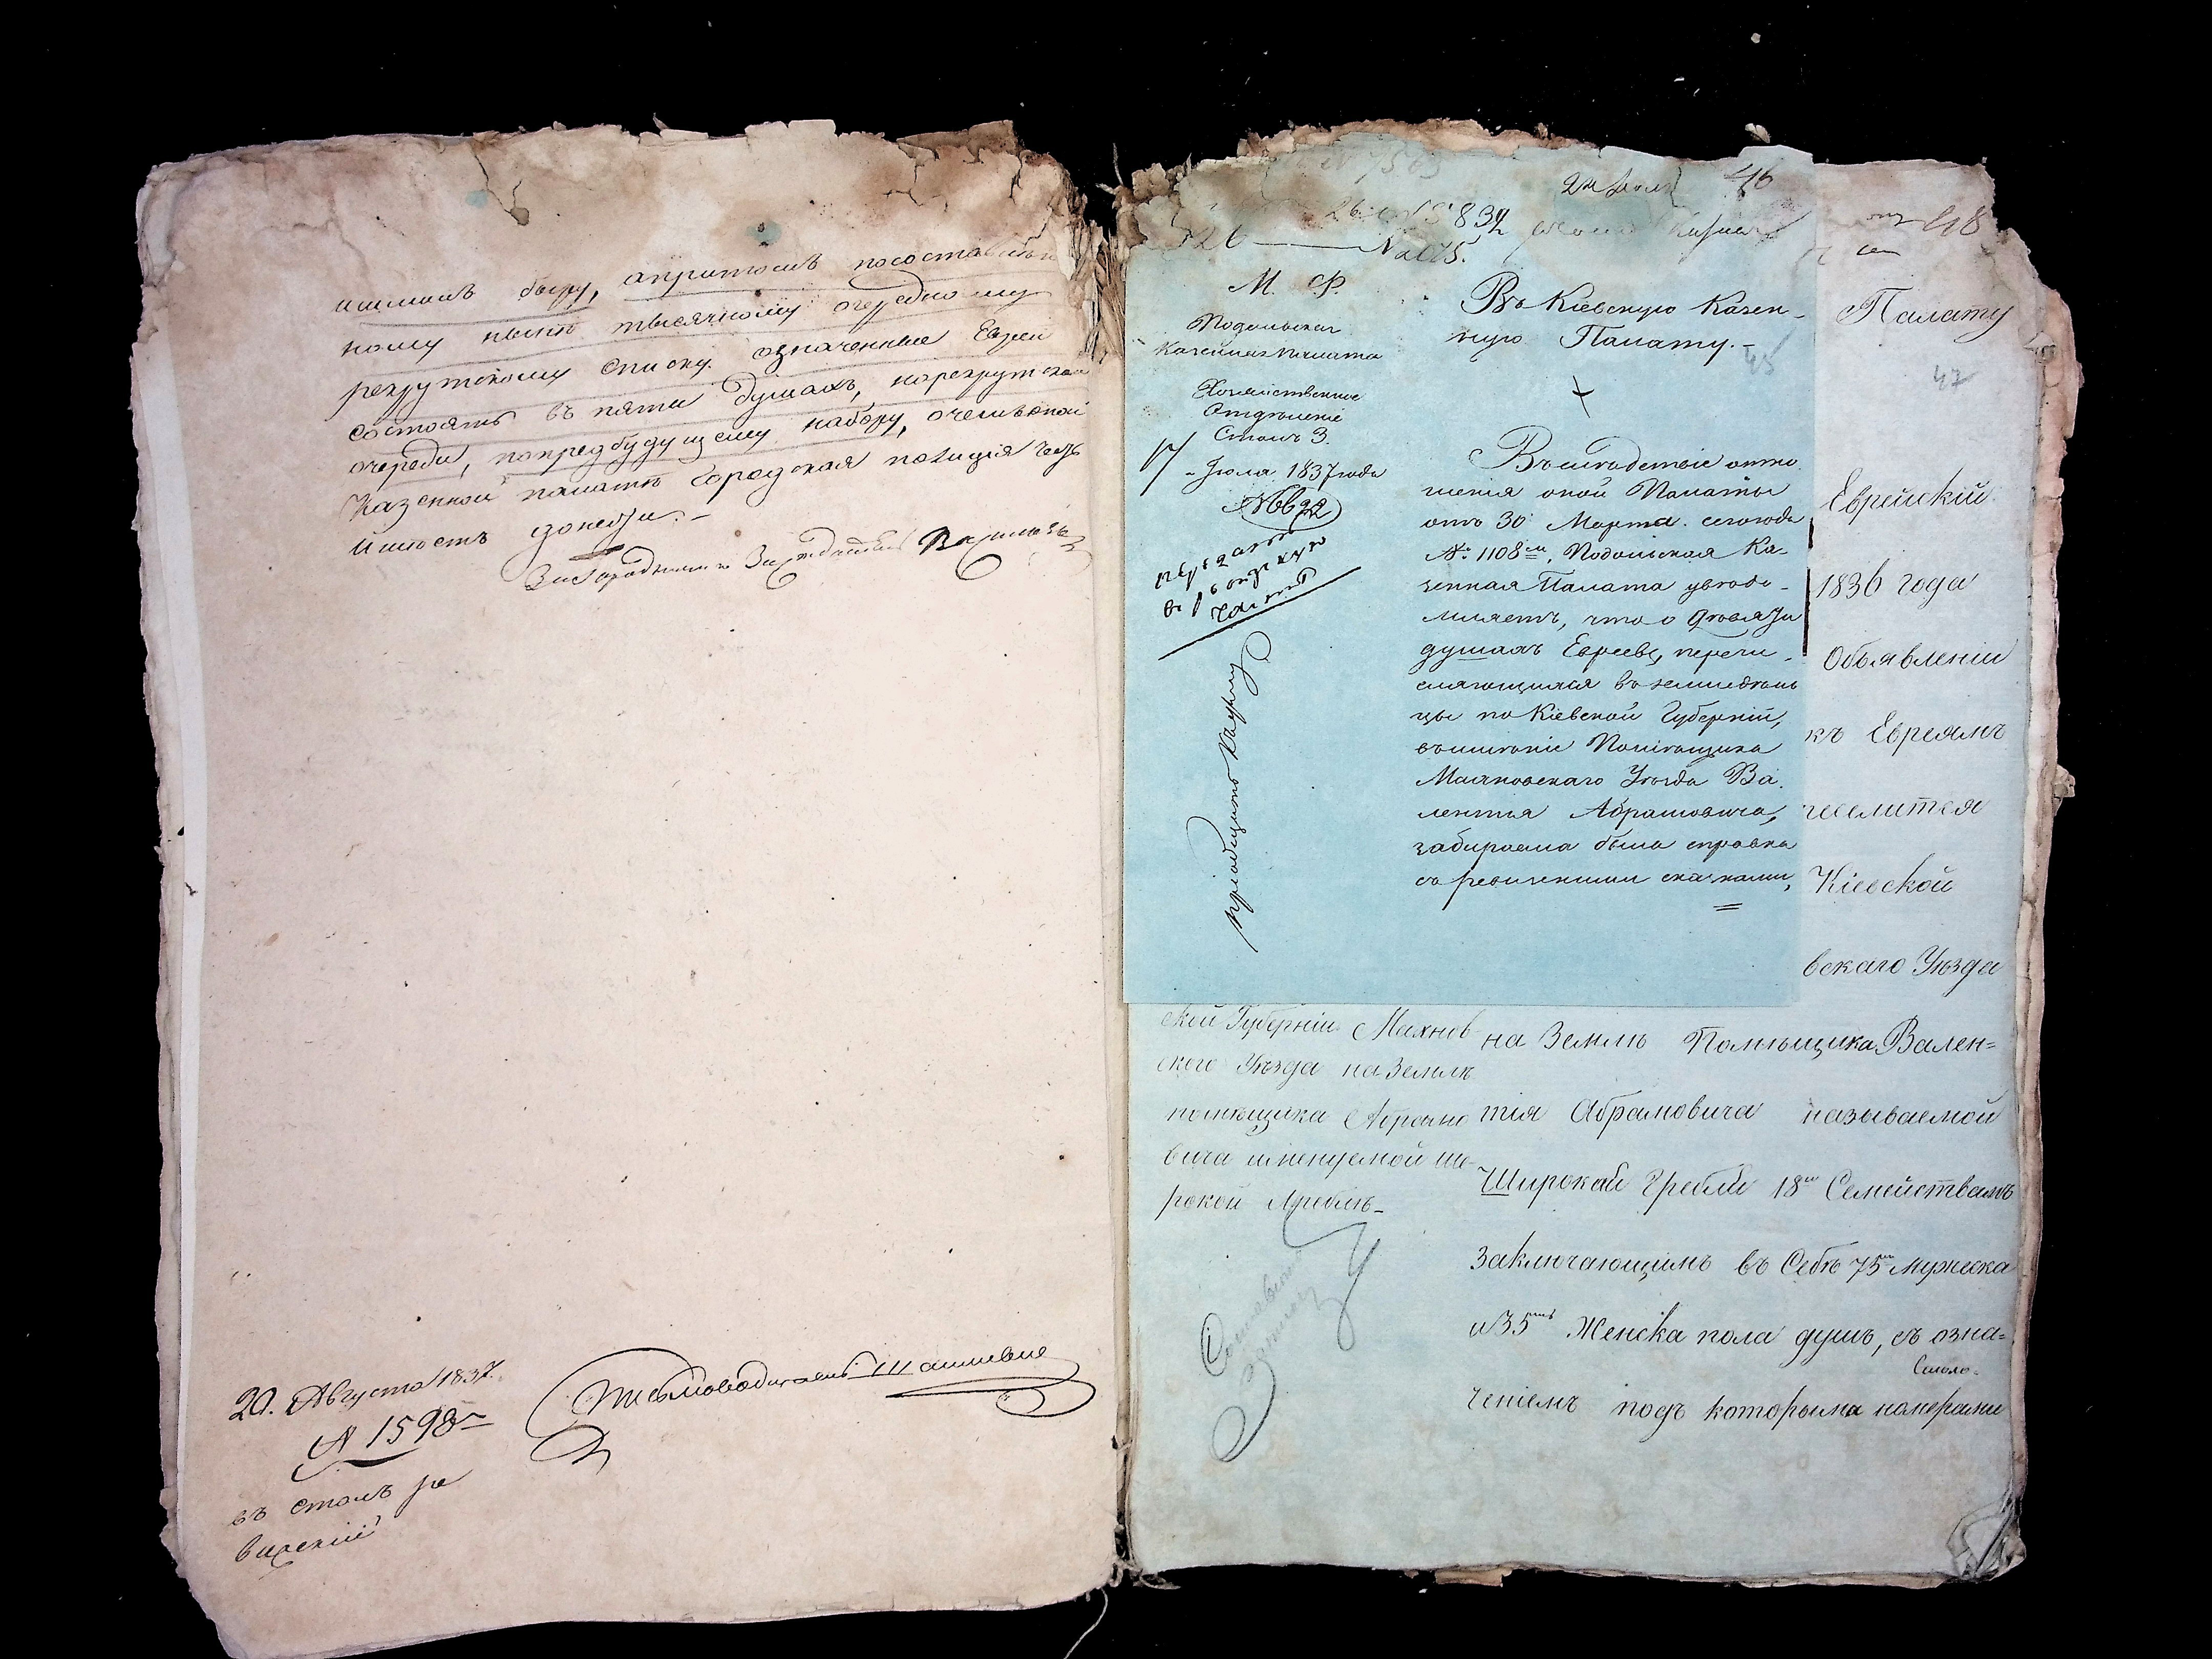 нимаетъ быту, апритомъ посоставлен
ному пыпѣ тысячному очередному
рекрутскому списку означенные Евреи
состоятъ въ пяти душахъ, порекрутской
очереди, попредбудущему набору, очемъ оной
Казенной палатѣ Городская полиція честь
имѣетъ донести.-
За Городничаго Засѣдатель
Письмоводитель
20. Августа 1837.
№ 1598
въ столъ ре
визскій
46
26 1837
26 № 2175.
М. Ф.
Подольская
Казенная палата
Хозяйственное
Отдѣленіе
Столъ 3.
17
- Іюля 1837 года
№
Въ Кіевскую Казен-
ную Палату.-
45
Въ слѣдствіе отно
шенія оной Палаты
отъ 30 Марта сего года
№ 1108, Подольская Ка-
зенная Палата увѣдо-
мляетъ, что о девяти
душахъ Евреевъ, перечи-
сляющихся въ земледѣль
цы по Кіевской Губерніи,
въ имѣніи Помѣщика
Махновскаго Уѣзда Ва
лентія Абрамовича,
забираема была справка
съ ревизскими сказками,
48
Палату
47
Еврейскій
1836 года
Объявленіи
къ Евреямъ
селится
Кіевской
вскаго Уѣзда
ской Губерніи Махнов
скаго Уѣзда на Землѣ
помѣщика Абрамо
вича именуемой Ши
рокой Греблѣ-
на Землѣ Помѣщика Вален=
тія Абрамовича называемой
Широкай Гребли 18 Семействамъ
заключающимъ въ Себѣ 75 мужеска
и 35 Женска пола душъ, съ озна=
ченіемъ подъ которыми номерами